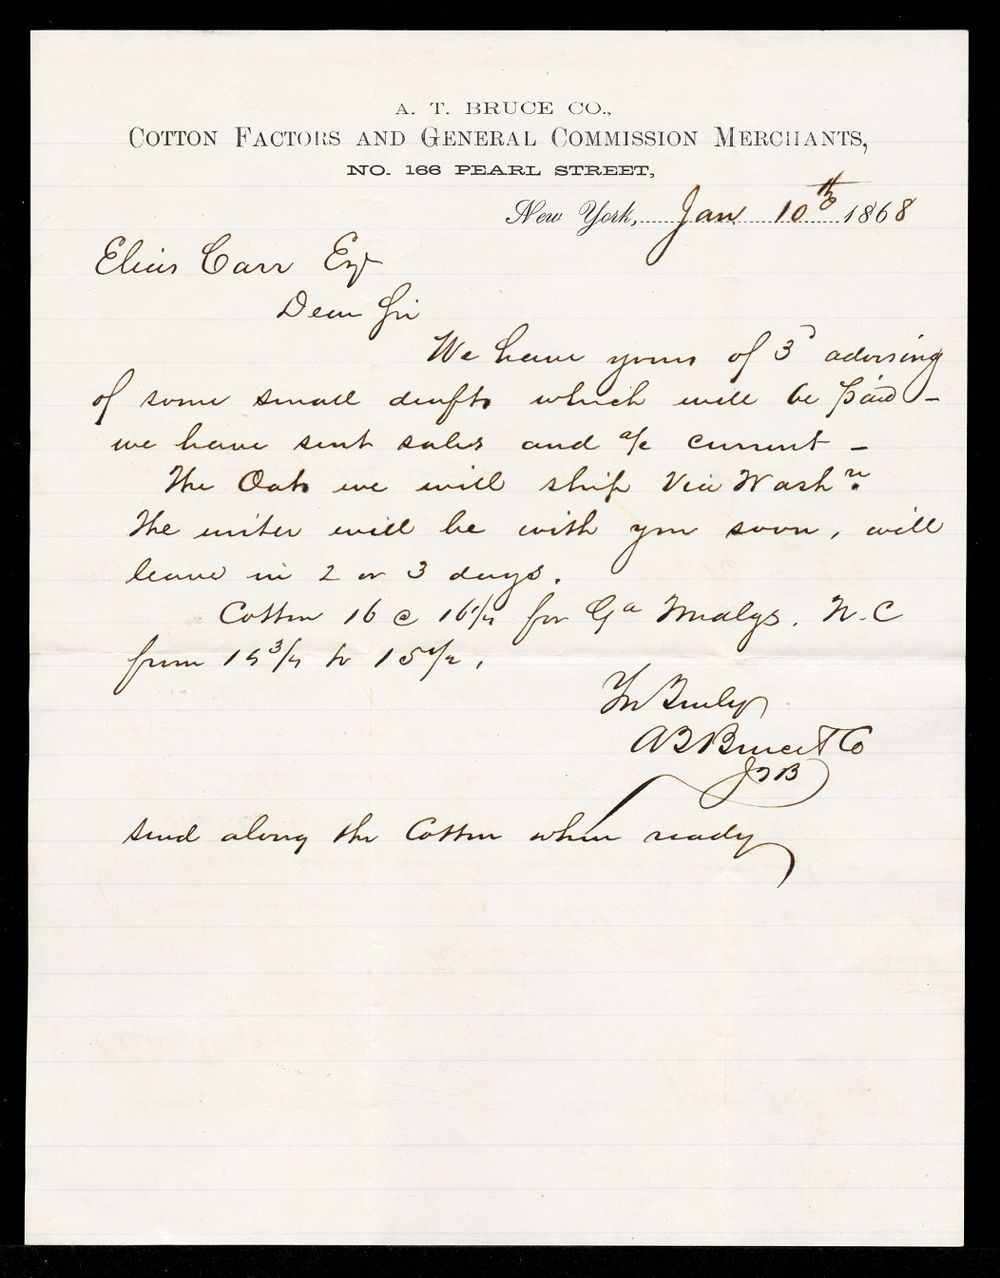 A. T. BRUCE CO.,
COTTON FACTORS AND GENERAL COMMISSION MERCHANTS,
NO. 166 PEARL STREET,
New York, Jan 10th 1868
Elias Carr Esq
Dear Sir
We have yours of 3d advising
of some small drafts which will be paid -
we have sent sales and a/c current -
The Oats we will ship via Washn.
The writer will be with you soon, will
leave in 2 or 3 days.
Cotton 16 @ 16 1/4 for Ga . N.C
from 15 3/4 to 15 1/2,
Yrs Truly
A T Bruce & Co
JTB
send along the Cotton when ready